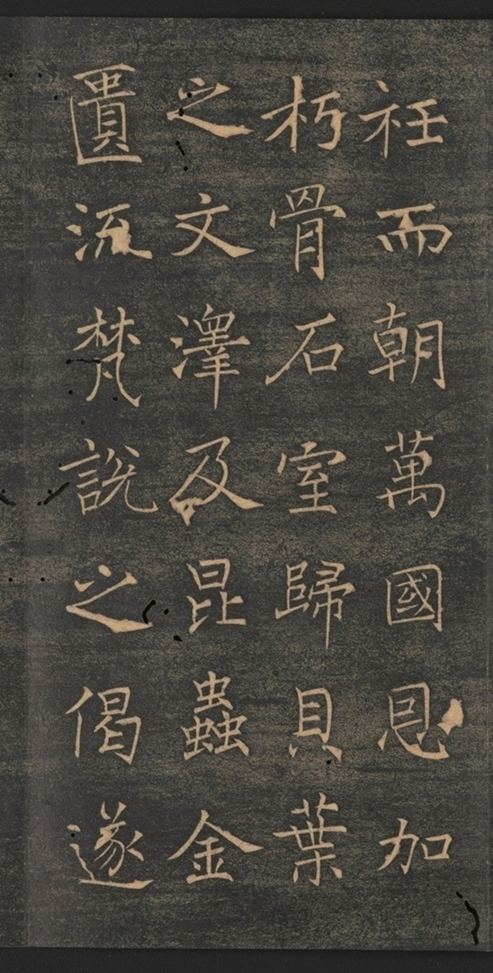 衽而朝萬國恩加
朽骨石室歸貝葉
之文澤及昆蟲金
匱流梵說之偈遂